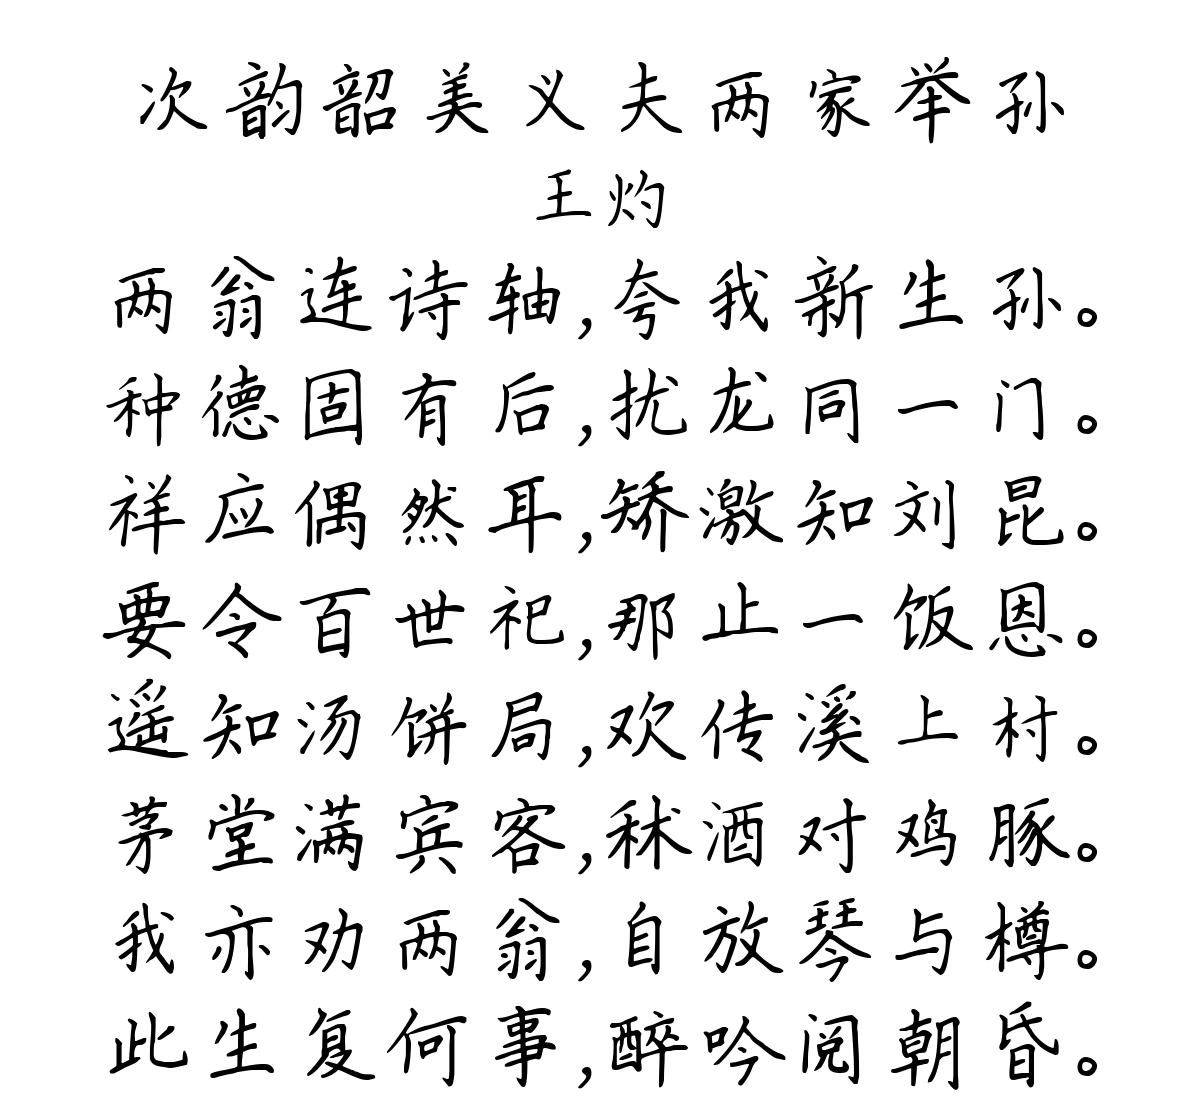 次韵韶美义夫两家举孙
王灼
两翁连诗轴,夸我新生孙。
种德固有后,扰龙同一门。
祥应偶然耳,矫激知刘昆。
要令百世祀,那止一饭恩。
遥知汤饼局,欢传溪上村。
茅堂满宾客,秫酒对鸡豚。
我亦劝两翁,自放琴与樽。
此生复何事,醉吟阅朝昏。